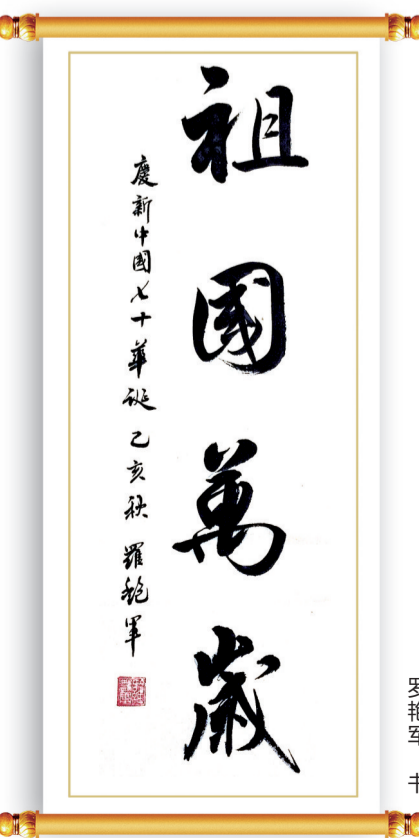 祖國萬歲
慶新中國七十華誕 乙亥秋 羅艳軍
罗艳军 书